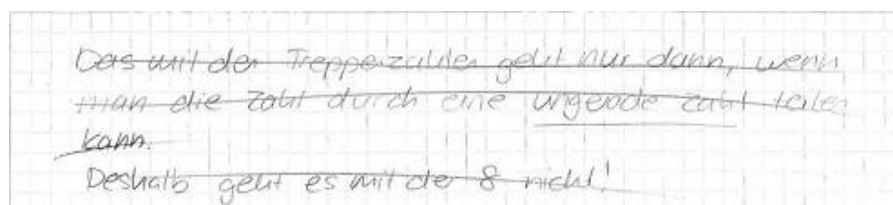 Das mit den Treppenzahlen geht nur dann, wenn
man die Zahl durch eine ungerade Zahl teilen
kann.
Deshalb geht es mit der 8 nicht!